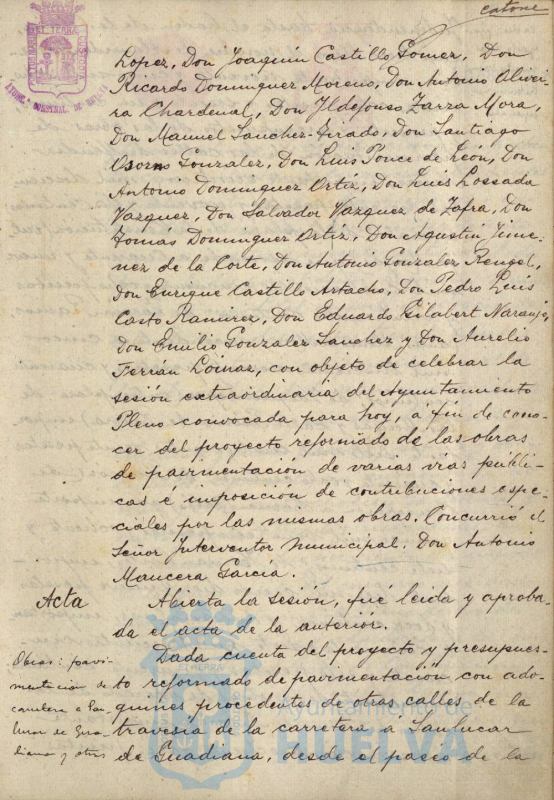 catorce
Lopez, Don Joaquin Castillo Gomez, Don
Ricardo Dominguez Moreno, Don Antonio Olivei-
ra Chardenal, Don Yldefonso Zarza Mora,
Don Manuel Sanchez-Tirado, Don Santiago
Osorno Gonzalez, Don Luis Ponce de León, Don
Antonio Dominguez Ortiz, Don Luis Lossada
Vazquez, Don Salvador Vazquez de Zafra, Don
Tomás Dominguez Ortiz, Don Agustin Jime-
nez de la Corte, Don Antonio Gonzalez Rengel,
Don Enrique Castillo Artacho, Don Pedro Luis
Casto Ramirez, Don Eduardo Gilabert Naranjo,
Don Emilio Gonzalez Sanchez y Don Aurelio
Ferrán Loinaz, con objeto de celebrar la
sesión extraordinaria del Ayuntamiento
Pleno convocada para hoy, a fin de cono-
cer del proyecto reformado de las obras
de pavimentación de varias vías públi-
cas é imposición de contribuciones espe-
ciales por las mismas obras. Concurrió el
Señor Interventor municipal. Don Antonio
Mancera García.
Acta
Abierta la sesión, fué leida y aproba-
da el acta de la anteriór.
Obras: pavi-
mentación de
carretera a San-
lucar de Gua-
diana y otros
Dada cuenta del proyecto y presupues-
to reformado de pavimentación con ado-
quines procedentes de otras calles de la
travesía de la carretera a Sanlucar
de Guadiana, desde el paseo de la
Ayuntamiento de
HUELVA